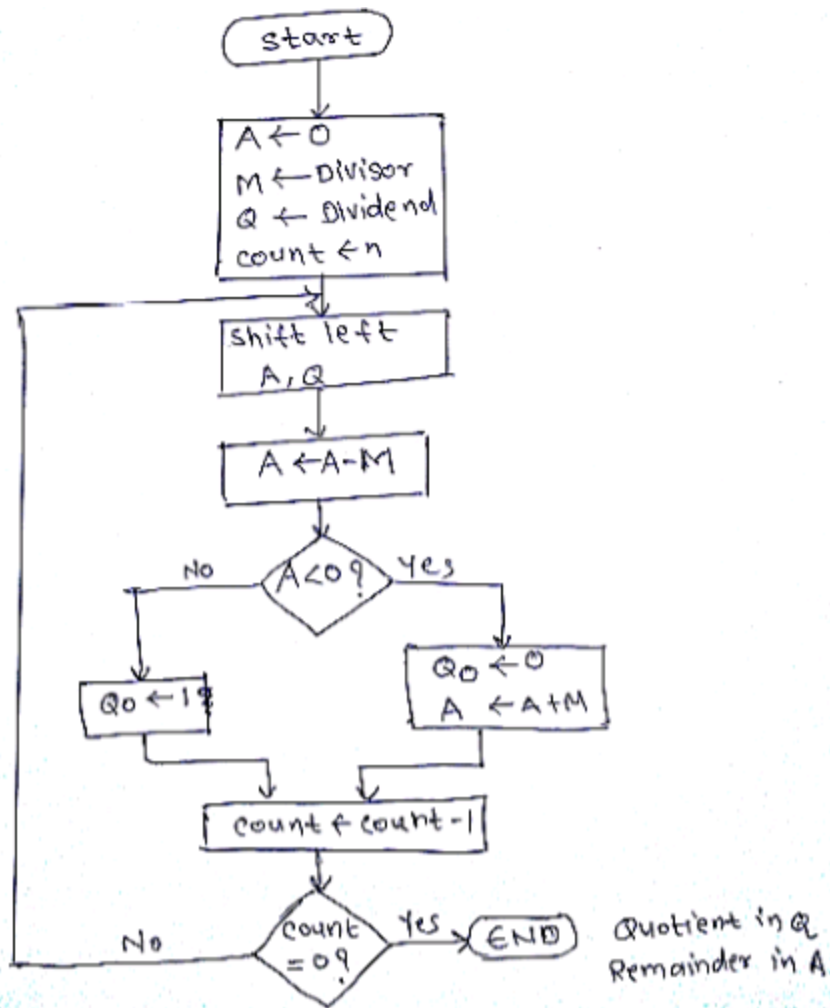 start
A ← 0
M ← Divisor
Q ← Dividend
count ← n
Shift left
A, Q
A ← A-M
A<0?
No
Yes
Q0 ← 1
Q0 ← 0
A ← A+M
count ← count-1
count
=0?
No
Yes
END
Quotient in Q
Remainder in A